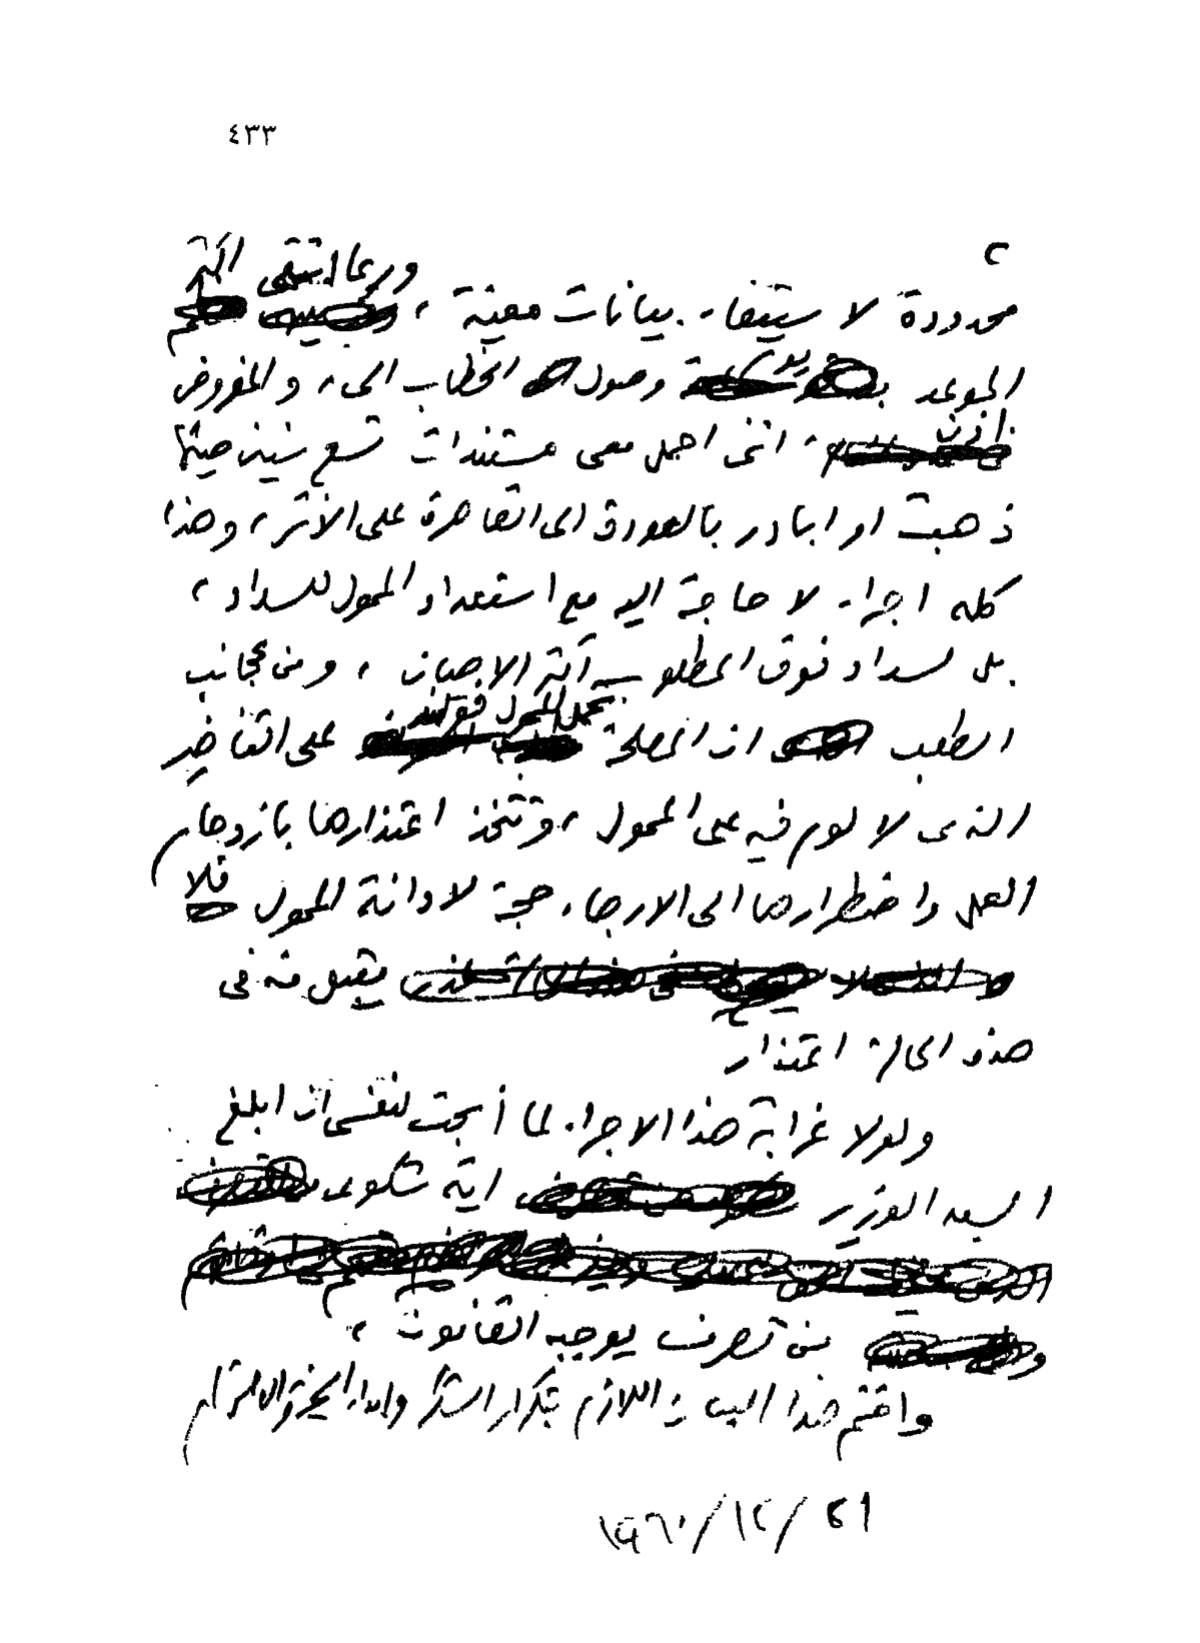 ٤٣٣
٢
وربما انتهى اكثر
محددة لاستيفاء بيانات معينة ،
الموعد يوم وصول الخطاب الى ، والمفروض
اذن ، اننى احمل معى مستندات تسع سنين حيثما
ذهبت او ابادر بالعودة الى القاهرة على الأثر ، وهذا
كله اجراء لا حاجة اليه مع استعداد الممول للسداد ،
بل لسداد فوق المطلوب فى الاحيان ، ومن عجائب
الطلب ان المصلحة تحمل الممول على التأخير
الذى لا لوم فيه على الممول ، وتتخذ اعتذارها بازدحام
العمل واضطرارها الى الارجاء حجة لادانة الممول فلا
يقبل منه فى
هذه الحالة اعتذار
ولولا غرابة هذا الاجراء لما أبحت لنفسى ان ابلغ
السيد الوزير اية شكوى
من تصرف يوجبه القانون ،
واختم هذا البيان اللازم بتكرار الشكر وابداء التحية والاحترام
٢١/١٢/١٩٦٠